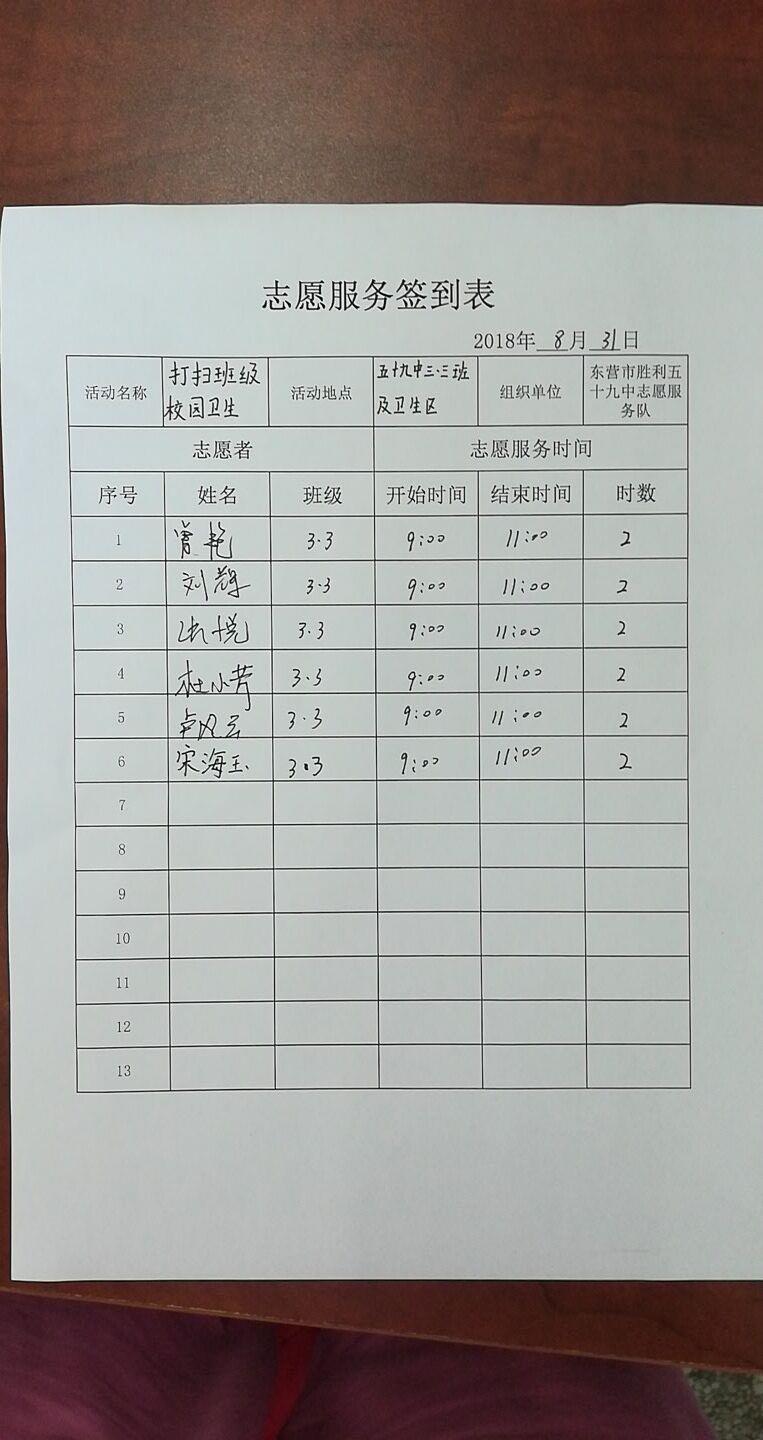 志愿服务签到表
2018年 8 月 31 日
活动名称 打扫班级校园卫生 活动地点 五十九中三.三班及卫生区 组织单位 东营市胜利五十九中志愿服务队
志愿者 志愿服务时间
序号 姓名 班级 开始时间 结束时间 时数
1 曾艳 3.3 9:00 11:00 2
2 刘辉 3.3 9:00 11:00 2
3 悦 3.3 9:00 11:00 2
4 杜小芳 3.3 9:00 11:00 2
5 卢风云 3.3 9:00 11:00 2
6 宋海玉 3.3 9:00 11:00 2
7
8
9
10
11
12
13